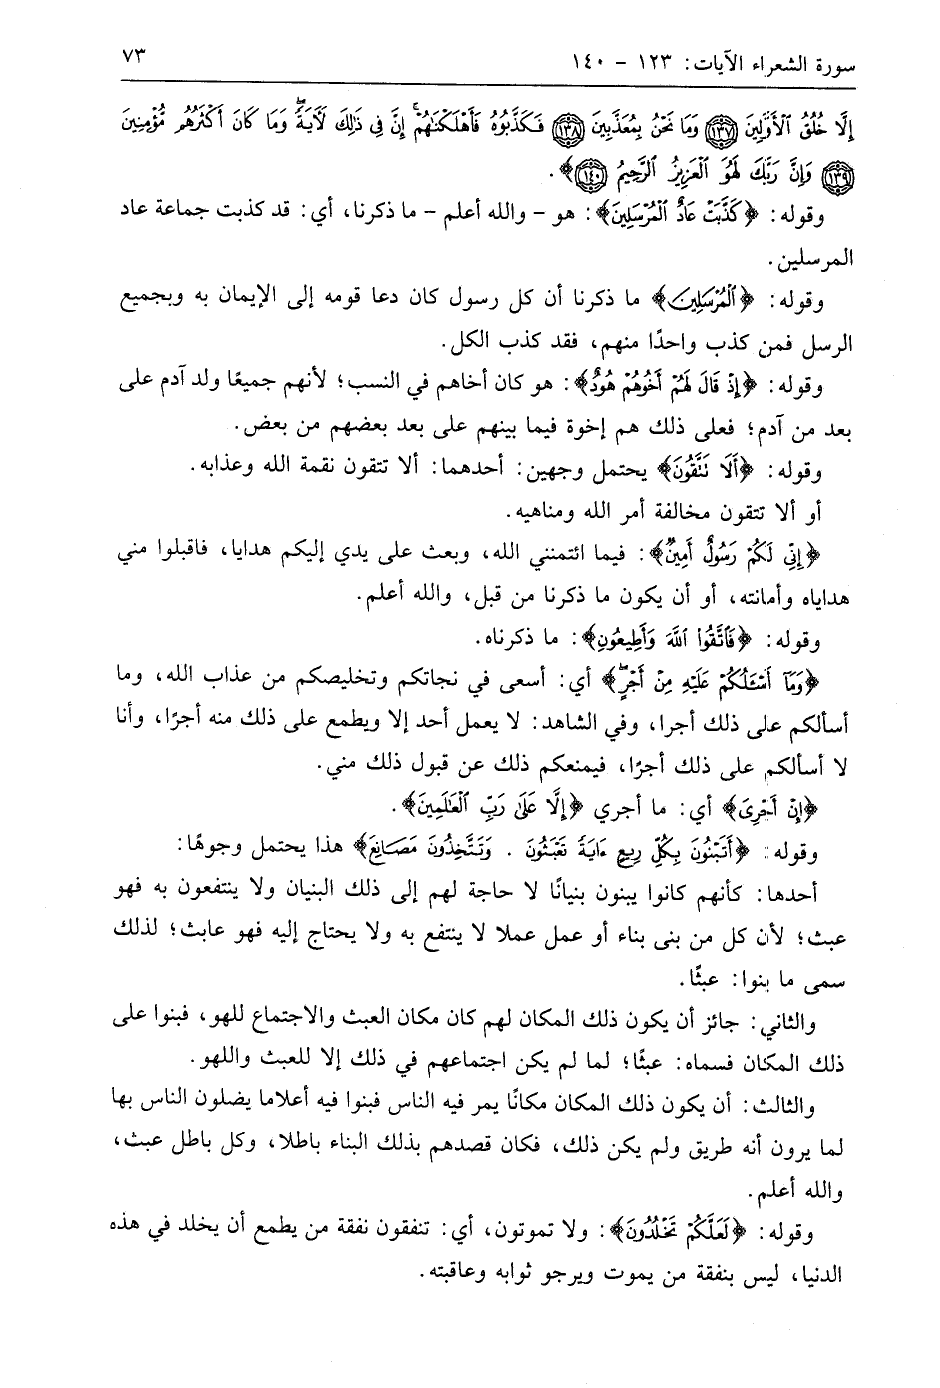 سورة الشعراء الآيات: ١٢٣ - ١٤٠
٧٣
إِلَّا خُلُقُ ٱلْأَوَّلِينَ ۝١٣٧ وَمَا نَحْنُ بِمُعَذَّبِينَ ۝١٣٨ فَكَذَّبُوهُ فَأَهْلَكْنَٰهُمْ ۗ إِنَّ فِى ذَٰلِكَ لَءَايَةً ۖ وَمَا كَانَ أَكْثَرُهُم مُّؤْمِنِينَ
۝١٣٩ وَإِنَّ رَبَّكَ لَهُوَ ٱلْعَزِيزُ ٱلرَّحِيمُ ۝١٤٠﴾.
وقوله: ﴿كَذَّبَتْ عَادٌ ٱلْمُرْسَلِينَ﴾: هو - والله أعلم - ما ذكرنا، أي: قد كذبت جماعة عاد
المرسلين.
وقوله: ﴿ٱلْمُرْسَلِينَ﴾ ما ذكرنا أن كل رسول كان دعا قومه إلى الإيمان به وبجميع
الرسل فمن كذب واحدًا منهم، فقد كذب الكل.
وقوله: ﴿إِذْ قَالَ لَهُمْ أَخُوهُمْ هُودٌ﴾: هو كان أخاهم في النسب؛ لأنهم جميعًا ولد آدم على
بعد من آدم؛ فعلى ذلك هم إخوة فيما بينهم على بعد بعضهم من بعض.
وقوله: ﴿أَلَا تَتَّقُونَ﴾ يحتمل وجهين: أحدهما: ألا تتقون نقمة الله وعذابه.
أو ألا تتقون مخالفة أمر الله ومناهيه.
﴿إِنِّى لَكُمْ رَسُولٌ أَمِينٌ﴾: فيما ائتمنني الله، وبعث على يدي إليكم هدايا، فاقبلوا مني
هداياه وأمانته، أو أن يكون ما ذكرنا من قبل، والله أعلم.
وقوله: ﴿فَٱتَّقُوا۟ ٱللَّهَ وَأَطِيعُونِ﴾: ما ذكرناه.
﴿وَمَآ أَسْـَٔلُكُمْ عَلَيْهِ مِنْ أَجْرٍ ۖ﴾ أي: أسعى في نجاتكم وتخليصكم من عذاب الله، وما
أسألكم على ذلك أجرا، وفي الشاهد: لا يعمل أحد إلا ويطمع على ذلك منه أجرًا، وأنا
لا أسألكم على ذلك أجرًا، فيمنعكم ذلك عن قبول ذلك مني.
﴿إِنْ أَجْرِىَ﴾ أي: ما أجري ﴿إِلَّا عَلَىٰ رَبِّ ٱلْعَٰلَمِينَ﴾.
وقوله: ﴿أَتَبْنُونَ بِكُلِّ رِيعٍ ءَايَةً تَعْبَثُونَ . وَتَتَّخِذُونَ مَصَانِعَ﴾ هذا يحتمل وجوهًا:
أحدها: كأنهم كانوا يبنون بنيانًا لا حاجة لهم إلى ذلك البنيان ولا ينتفعون به فهو
عبث؛ لأن كل من بنى بناء أو عمل عملا لا ينتفع به ولا يحتاج إليه فهو عابث؛ لذلك
سمى ما بنوا: عبثًا.
والثاني: جائز أن يكون ذلك المكان لهم كان مكان العبث والاجتماع للهو، فبنوا على
ذلك المكان فسماه: عبثًا؛ لما لم يكن اجتماعهم في ذلك إلا للعبث واللهو.
والثالث: أن يكون ذلك المكان مكانًا يمر فيه الناس فبنوا فيه أعلاما يضلون الناس بها
لما يرون أنه طريق ولم يكن ذلك، فكان قصدهم بذلك البناء باطلا، وكل باطل عبث،
والله أعلم.
وقوله: ﴿لَعَلَّكُمْ تَخْلُدُونَ﴾: ولا تموتون، أي: تنفقون نفقة من يطمع أن يخلد في هذه
الدنيا، ليس بنفقة من يموت ويرجو ثوابه وعاقبته.